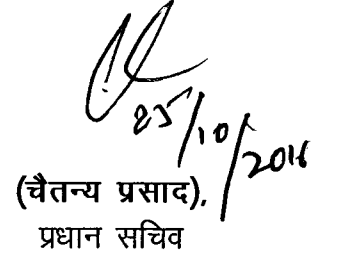 25/10/2016
(चैतन्य प्रसाद),
प्रधान सचिव